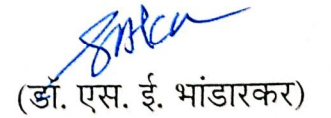 (डॉ. एस. ई. भांडारकर)